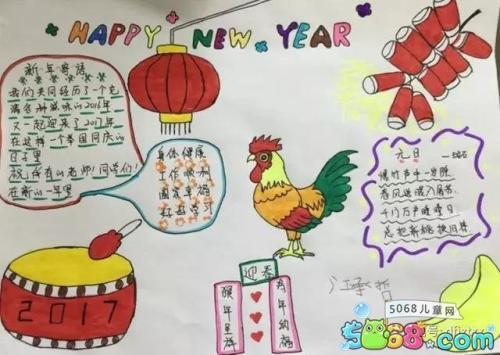 HAPPY NEW YEAR
新年寄语
我们共同经历了一个充
满各种滋味的2016年
又一起迎来了2017年
在这样一个举国同庆的
日子里
祝所有的老师！同学们！
在新的一年里
身体健康
工作顺利
元日
爆竹声中一岁除
春风送暖入屠苏
千门万户曈曈日
总把新桃换旧符
2017
迎春
猴年呈祥
年纳福
5068儿童网
5068.com